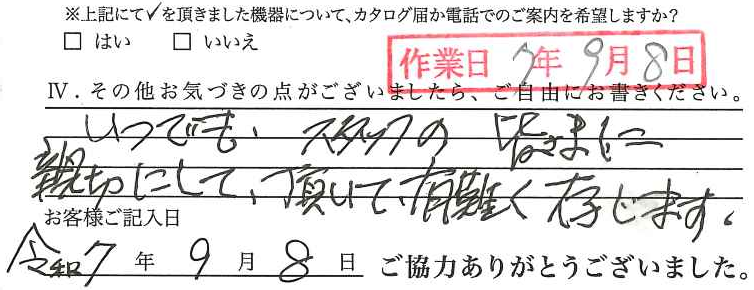 ※上記にて✓を頂きました機器について、カタログ届か電話でのご案内を希望しますか?
□ はい □ いいえ
作業日 7年9月8日
Ⅳ．その他お気づきの点がございましたら、ご自由にお書きください。
いつでも、スタッフの皆さまに
親切にして、頂いて、有難く存じます。
お客様ご記入日
令和7年9月8日 ご協力ありがとうございました。